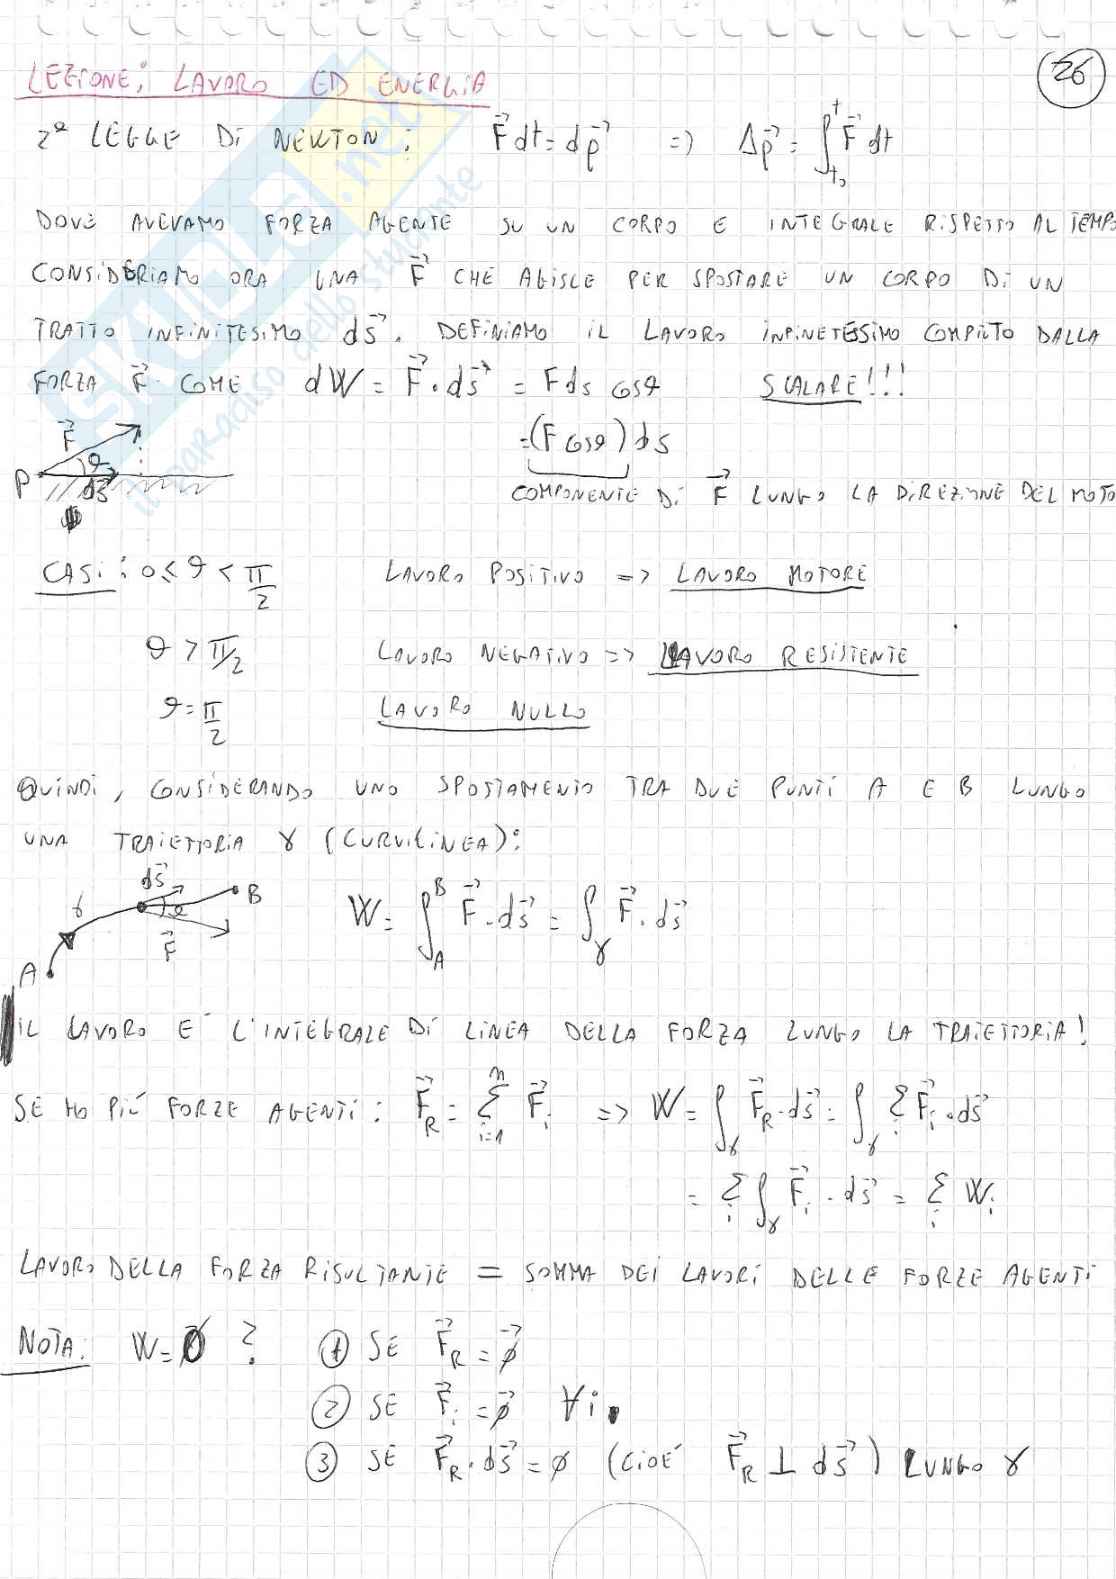 LEZIONE: LAVORO ED ENERGIA
26
2ª LEGGE DI NEWTON: F⃗dt = dp⃗ => Δp⃗ = ∫_{t₀}^{t} F⃗ dt
DOVE AVEVAMO FORZA AGENTE SU UN CORPO E INTEGRALE RISPETTO AL TEMPO
CONSIDERIAMO ORA UNA F⃗ CHE AGISCE PER SPOSTARE UN CORPO DI UN
TRATTO INFINITESIMO ds⃗. DEFINIAMO IL LAVORO INFINETESIMO COMPIUTO DALLA
FORZA F⃗ COME dW = F⃗ · ds⃗ = F ds cosθ SCALARE!!!
= (F cosθ) ds
F⃗
θ
P
ds⃗
COMPONENTE DI F⃗ LUNGO LA DIREZIONE DEL MOTO
CASI: 0 ≤ θ < π/2 LAVORO POSITIVO => LAVORO MOTORE
θ > π/2 LAVORO NEGATIVO => LAVORO RESISTENTE
θ = π/2 LAVORO NULLO
QUINDI, CONSIDERANDO UNO SPOSTAMENTO TRA DUE PUNTI A E B LUNGO
UNA TRAIETTORIA γ (CURVILINEA):
ds⃗
γ
θ
B
F⃗
A
W = ∫_A^B F⃗ · ds⃗ = ∫_γ F⃗ · ds⃗
IL LAVORO E' L'INTEGRALE DI LINEA DELLA FORZA LUNGO LA TRAIETTORIA!
SE HO PIÙ FORZE AGENTI: F⃗_R = Σ_{i=1}^{n} F⃗_i => W = ∫_γ F⃗_R · ds⃗ = ∫_γ Σ_i F⃗_i · ds⃗
= Σ_i ∫_γ F⃗_i · ds⃗ = Σ_i W_i
LAVORO DELLA FORZA RISULTANTE = SOMMA DEI LAVORI DELLE FORZE AGENTI
NOTA: W = Ø ? ① SE F⃗_R = Ø⃗
② SE F⃗_i = Ø⃗ ∀i
③ SE F⃗_R · ds⃗ = Ø (CIOE' F⃗_R ⊥ ds⃗) LUNGO γ
SKUOLA.net
il paradiso dello studente